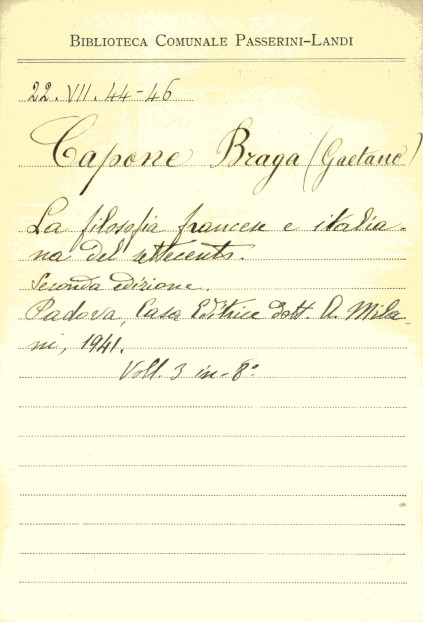 BIBLIOTECA COMUNALE PASSERINI-LANDI
22. VII. 44-46
Capone Braga (Gaetano)
La filosofia francese e italia-
na del settecento.
Seconda edizione.
Padova, Casa Editrice Dott. A. Mila-
ni, 1941.
Voll. 3 in-8°